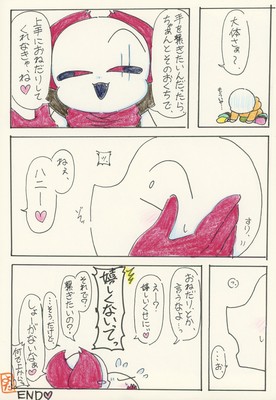 大体さぁ〜
手を繋ぎたいんだったら、
ちゃあんとそのおくちで、
上手におねだりして
くれなきゃ、ね♡
ねぇ、
ハニー♡
すり…
…お
おねだり、とか
言うなよ…っ
えー？
嬉しいくせに♡
嬉しくないでっ
それで？
繋ぎたいの？
…そう、だけど…
しょーがないなぁ♡
END♡